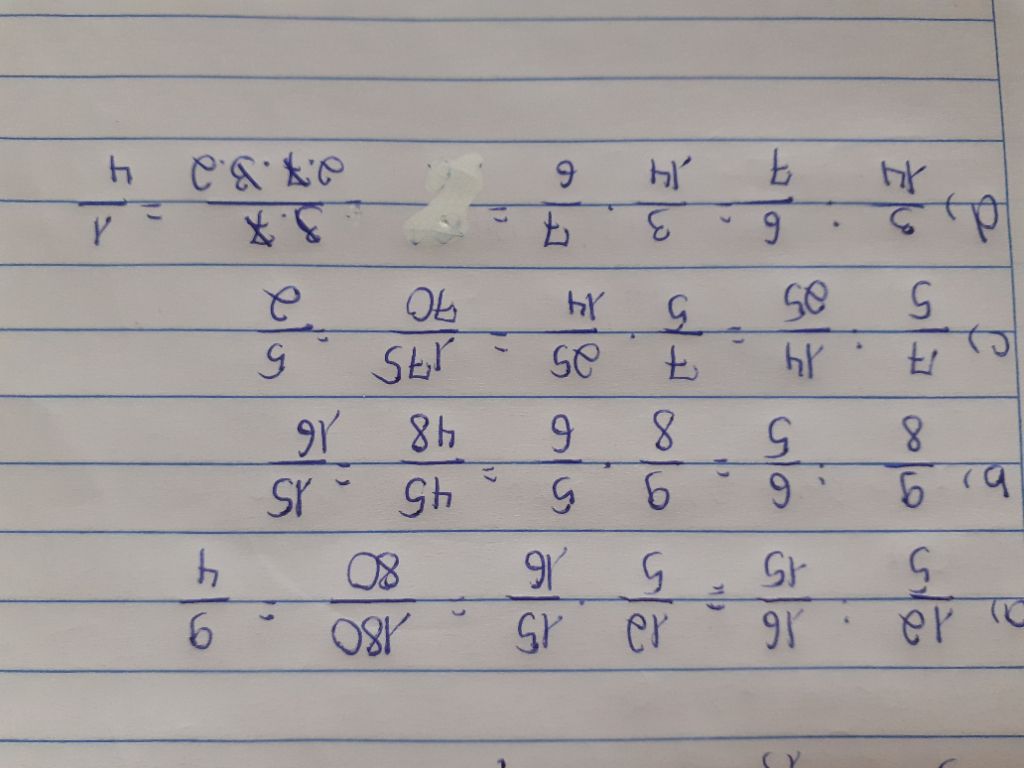 a) 12/5 : 16/15 = 12/5 · 15/16 = 180/80 = 9/4
b) 9/8 : 6/5 = 9/8 · 5/6 = 45/48 = 15/16
c) 7/5 : 14/25 = 7/5 · 25/14 = 175/70 = 5/2
d) 3/14 : 6/7 = 3/14 · 7/6 = = 3·7/2·7·3·2 = 1/4